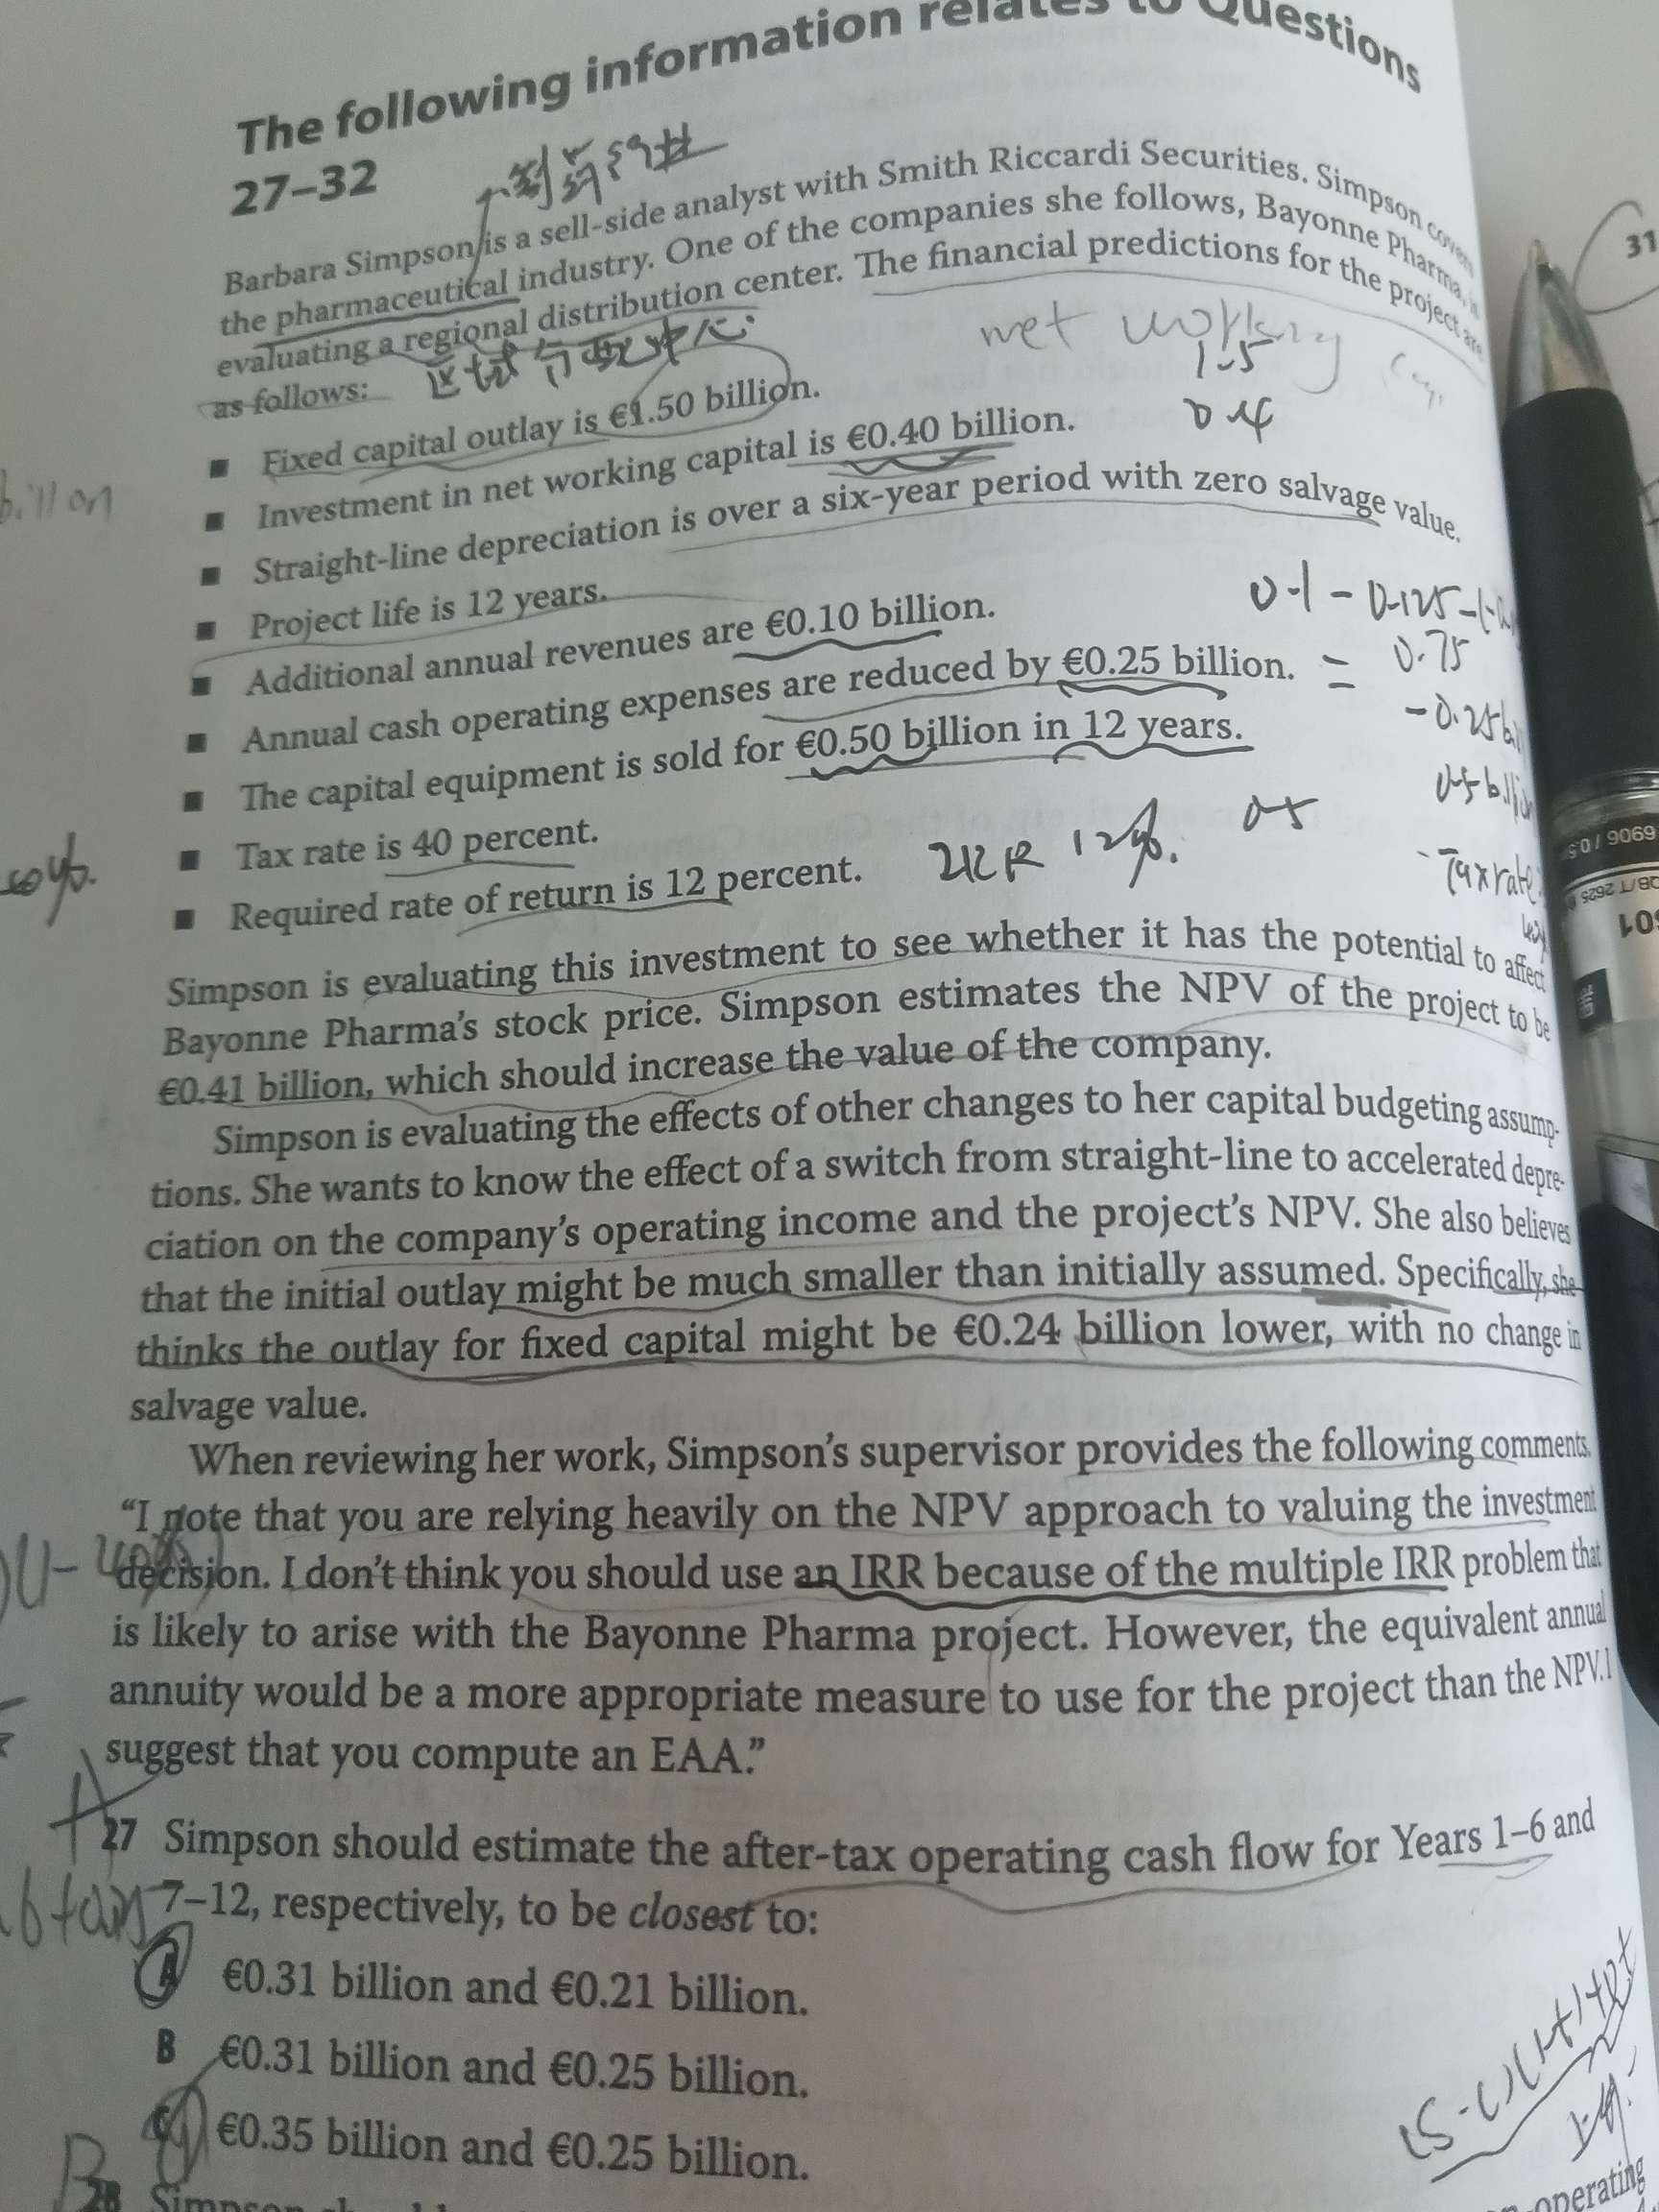 The following information relates to Questions
27–32
Barbara Simpson is a sell-side analyst with Smith Riccardi Securities. Simpson covers
the pharmaceutical industry. One of the companies she follows, Bayonne Pharma, is
evaluating a regional distribution center. The financial predictions for the project are
as follows:
net working
1.5
0.4
■ Fixed capital outlay is €1.50 billion.
■ Investment in net working capital is €0.40 billion.
billon
■ Straight-line depreciation is over a six-year period with zero salvage value.
■ Project life is 12 years.
■ Additional annual revenues are €0.10 billion.
0.1 - 0.125 -
■ Annual cash operating expenses are reduced by €0.25 billion.
= 0.75
■ The capital equipment is sold for €0.50 billion in 12 years.
■ Tax rate is 40 percent.
Tax rate
■ Required rate of return is 12 percent.
12%.
Simpson is evaluating this investment to see whether it has the potential to affect
Bayonne Pharma’s stock price. Simpson estimates the NPV of the project to be
€0.41 billion, which should increase the value of the company.
Simpson is evaluating the effects of other changes to her capital budgeting assump-
tions. She wants to know the effect of a switch from straight-line to accelerated depre-
ciation on the company’s operating income and the project’s NPV. She also believes
that the initial outlay might be much smaller than initially assumed. Specifically, she
thinks the outlay for fixed capital might be €0.24 billion lower, with no change in
salvage value.
When reviewing her work, Simpson’s supervisor provides the following comments.
“I note that you are relying heavily on the NPV approach to valuing the investment
decision. I don’t think you should use an IRR because of the multiple IRR problem that
is likely to arise with the Bayonne Pharma project. However, the equivalent annual
annuity would be a more appropriate measure to use for the project than the NPV. I
suggest that you compute an EAA.”
A
27 Simpson should estimate the after-tax operating cash flow for Years 1–6 and
7–12, respectively, to be closest to:
A €0.31 billion and €0.21 billion.
B €0.31 billion and €0.25 billion.
C €0.35 billion and €0.25 billion.
B
28 Simpson
operating
31